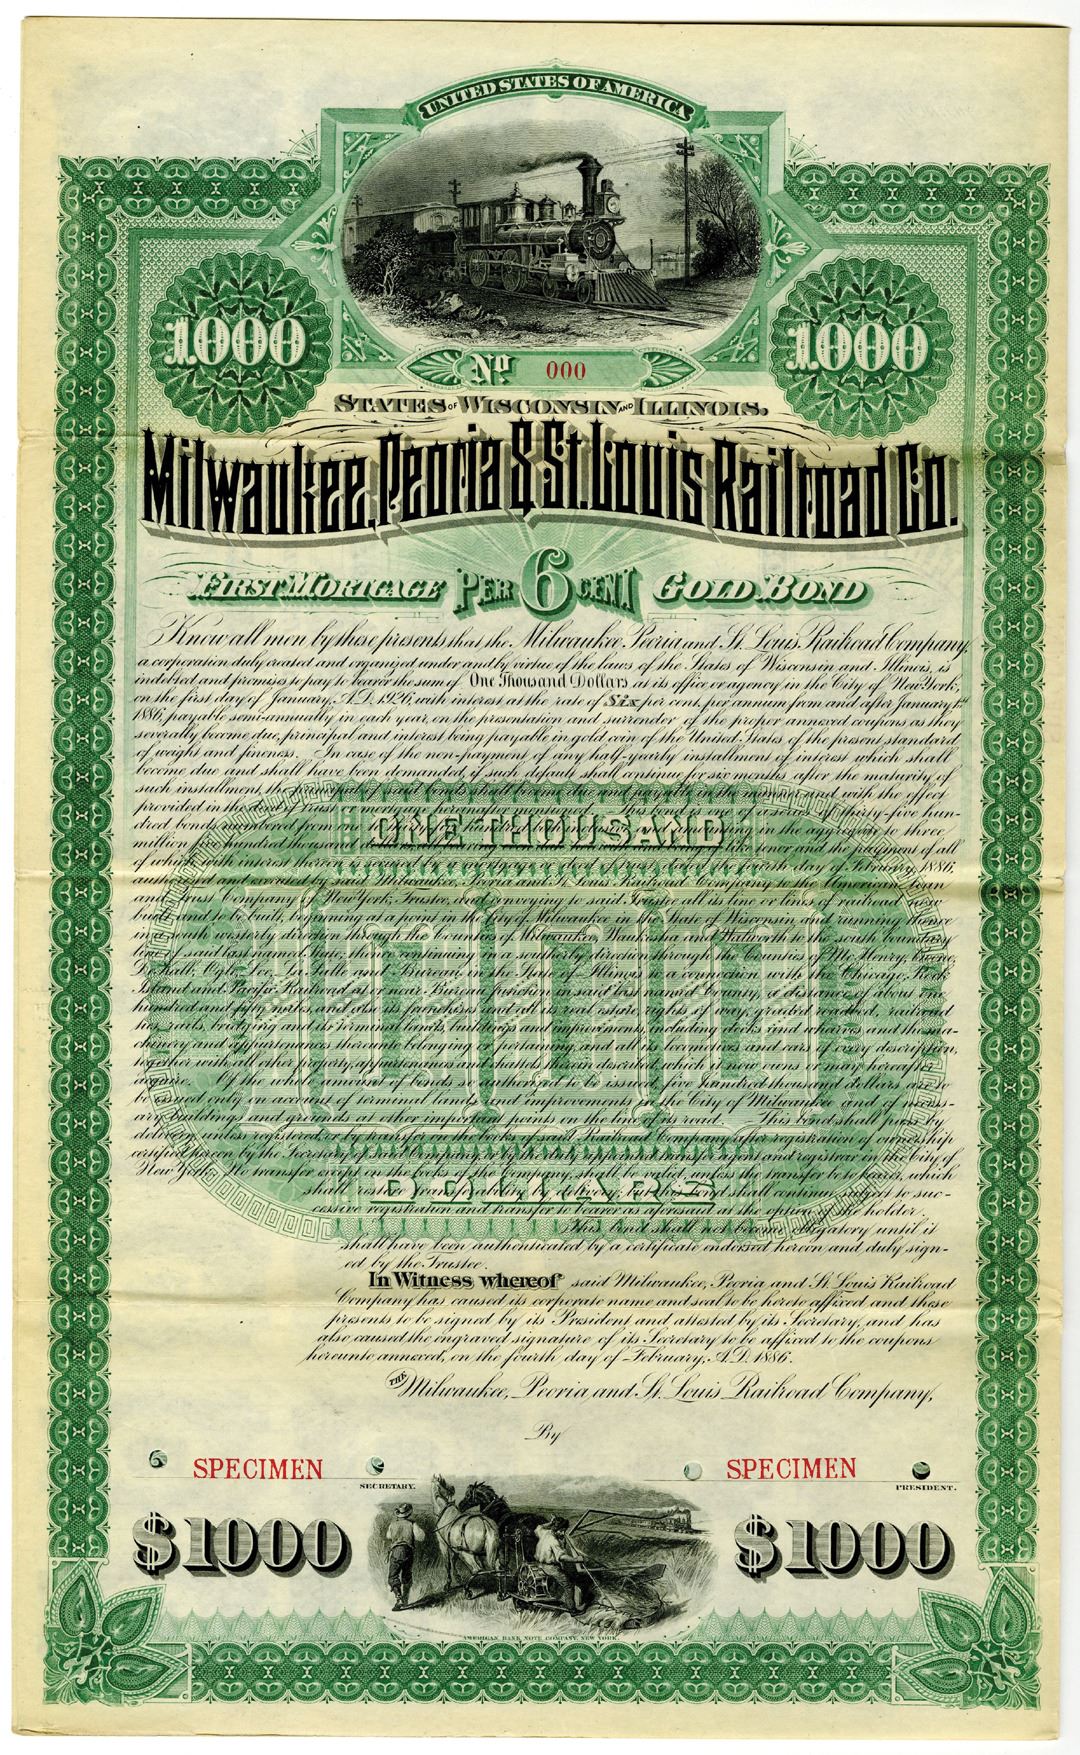 UNITED STATES OF AMERICA
1000
1000
No 000
STATES OF WISCONSIN AND ILLINOIS.
Milwaukee, Peoria & St. Louis Railroad Co.
FIRST MORTGAGE PER 6 CENT GOLD BOND
Know all men by these presents that the Milwaukee, Peoria and St. Louis Railroad Company,
a corporation duly created and organized under and by virtue of the laws of the States of Wisconsin and Illinois, is
indebted and promises to pay to bearer the sum of One Thousand Dollars at its office or agency in the City of New York,
on the first day of January, A.D. 1926, with interest at the rate of Six per cent. per annum from and after January 1st
1886, payable semi-annually in each year, on the presentation and surrender of the proper annexed coupons as they
severally become due, principal and interest being payable in gold coin of the United States of the present standard
of weight and fineness. In case of the non-payment of any half-yearly installment of interest which shall
become due and shall have been demanded, if such default shall continue for six months after the maturity of
such installment, the principal of said bonds shall become due and payable in the manner and with the effect
provided in the deed of trust or mortgage hereinafter mentioned. This bond is one of a series of thirty-five hun-
dred bonds numbered from one to thirty-five hundred, both inclusive, and amounting in the aggregate to three
million five hundred thousand like tenor and the payment of all
of which with interest thereon is secured by a mortgage or deed of trust, dated the fourth day of February, 1886,
authorized and executed by said Milwaukee, Peoria and St. Louis Railroad Company to the American Loan
and Trust Company of New York, Trustee, and conveying to said Trustee all its line or lines of railroad now
built and to be built, beginning at a point in the City of Milwaukee in the State of Wisconsin and running thence
in a south westerly direction through the Counties of Milwaukee, Waukesha and Walworth to the south boundary
line of said last named State, thence continuing in a southerly direction through the Counties of Mc Henry, Boone,
De Kalb, Ogle, Lee, La Salle and Bureau, in the State of Illinois to a connection with the Chicago, Rock
Island and Pacific Railroad, at or near Bureau Junction in said last named County, a distance of about one
hundred and fifty miles, and also its franchises and all its real estate, rights of way, graded roadbed, railroad
ties, rails, bridging and its terminal lands, buildings and improvements, including docks and wharves, and the ma-
chinery and appurtenances thereunto belonging or pertaining, and all its locomotives and cars of every description,
together with all other property, appurtenances and chattels therein described, which it now owns or may hereafter
acquire. Of the whole amount of bonds so authorized to be issued, five hundred thousand dollars are to
be issued only on account of terminal lands and improvements in the City of Milwaukee and of necess-
ary buildings and grounds at other important points on the line of its road. This bond shall pass by
delivery, unless registered, or by transfer on the books of said Railroad Company after registration of ownership
certified hereon by the Secretary of said Company or by its duly appointed transfer agent and registrar in the City of
New York. No transfer except on the books of the Company, shall be valid, unless the transfer be to bearer, which
shall restore transferability by delivery, but the bond shall continue subject to suc-
cessive registration and transfer to bearer as aforesaid at the option of the holder.
This bond shall not become obligatory until it
shall have been authenticated by a certificate endorsed hereon and duly sign-
ed by the Trustee.
ONE THOUSAND
1000
DOLLARS
In Witness whereof said Milwaukee, Peoria and St. Louis Railroad
Company has caused its corporate name and seal to be hereto affixed and these
presents to be signed by its President and attested by its Secretary, and has
also caused the engraved signature of its Secretary to be affixed to the coupons
hereunto annexed, on the fourth day of February, A.D. 1886.
THE Milwaukee, Peoria, and St. Louis Railroad Company,
By
SPECIMEN
SECRETARY.
SPECIMEN
PRESIDENT.
$1000
$1000
AMERICAN BANK NOTE COMPANY, NEW YORK.